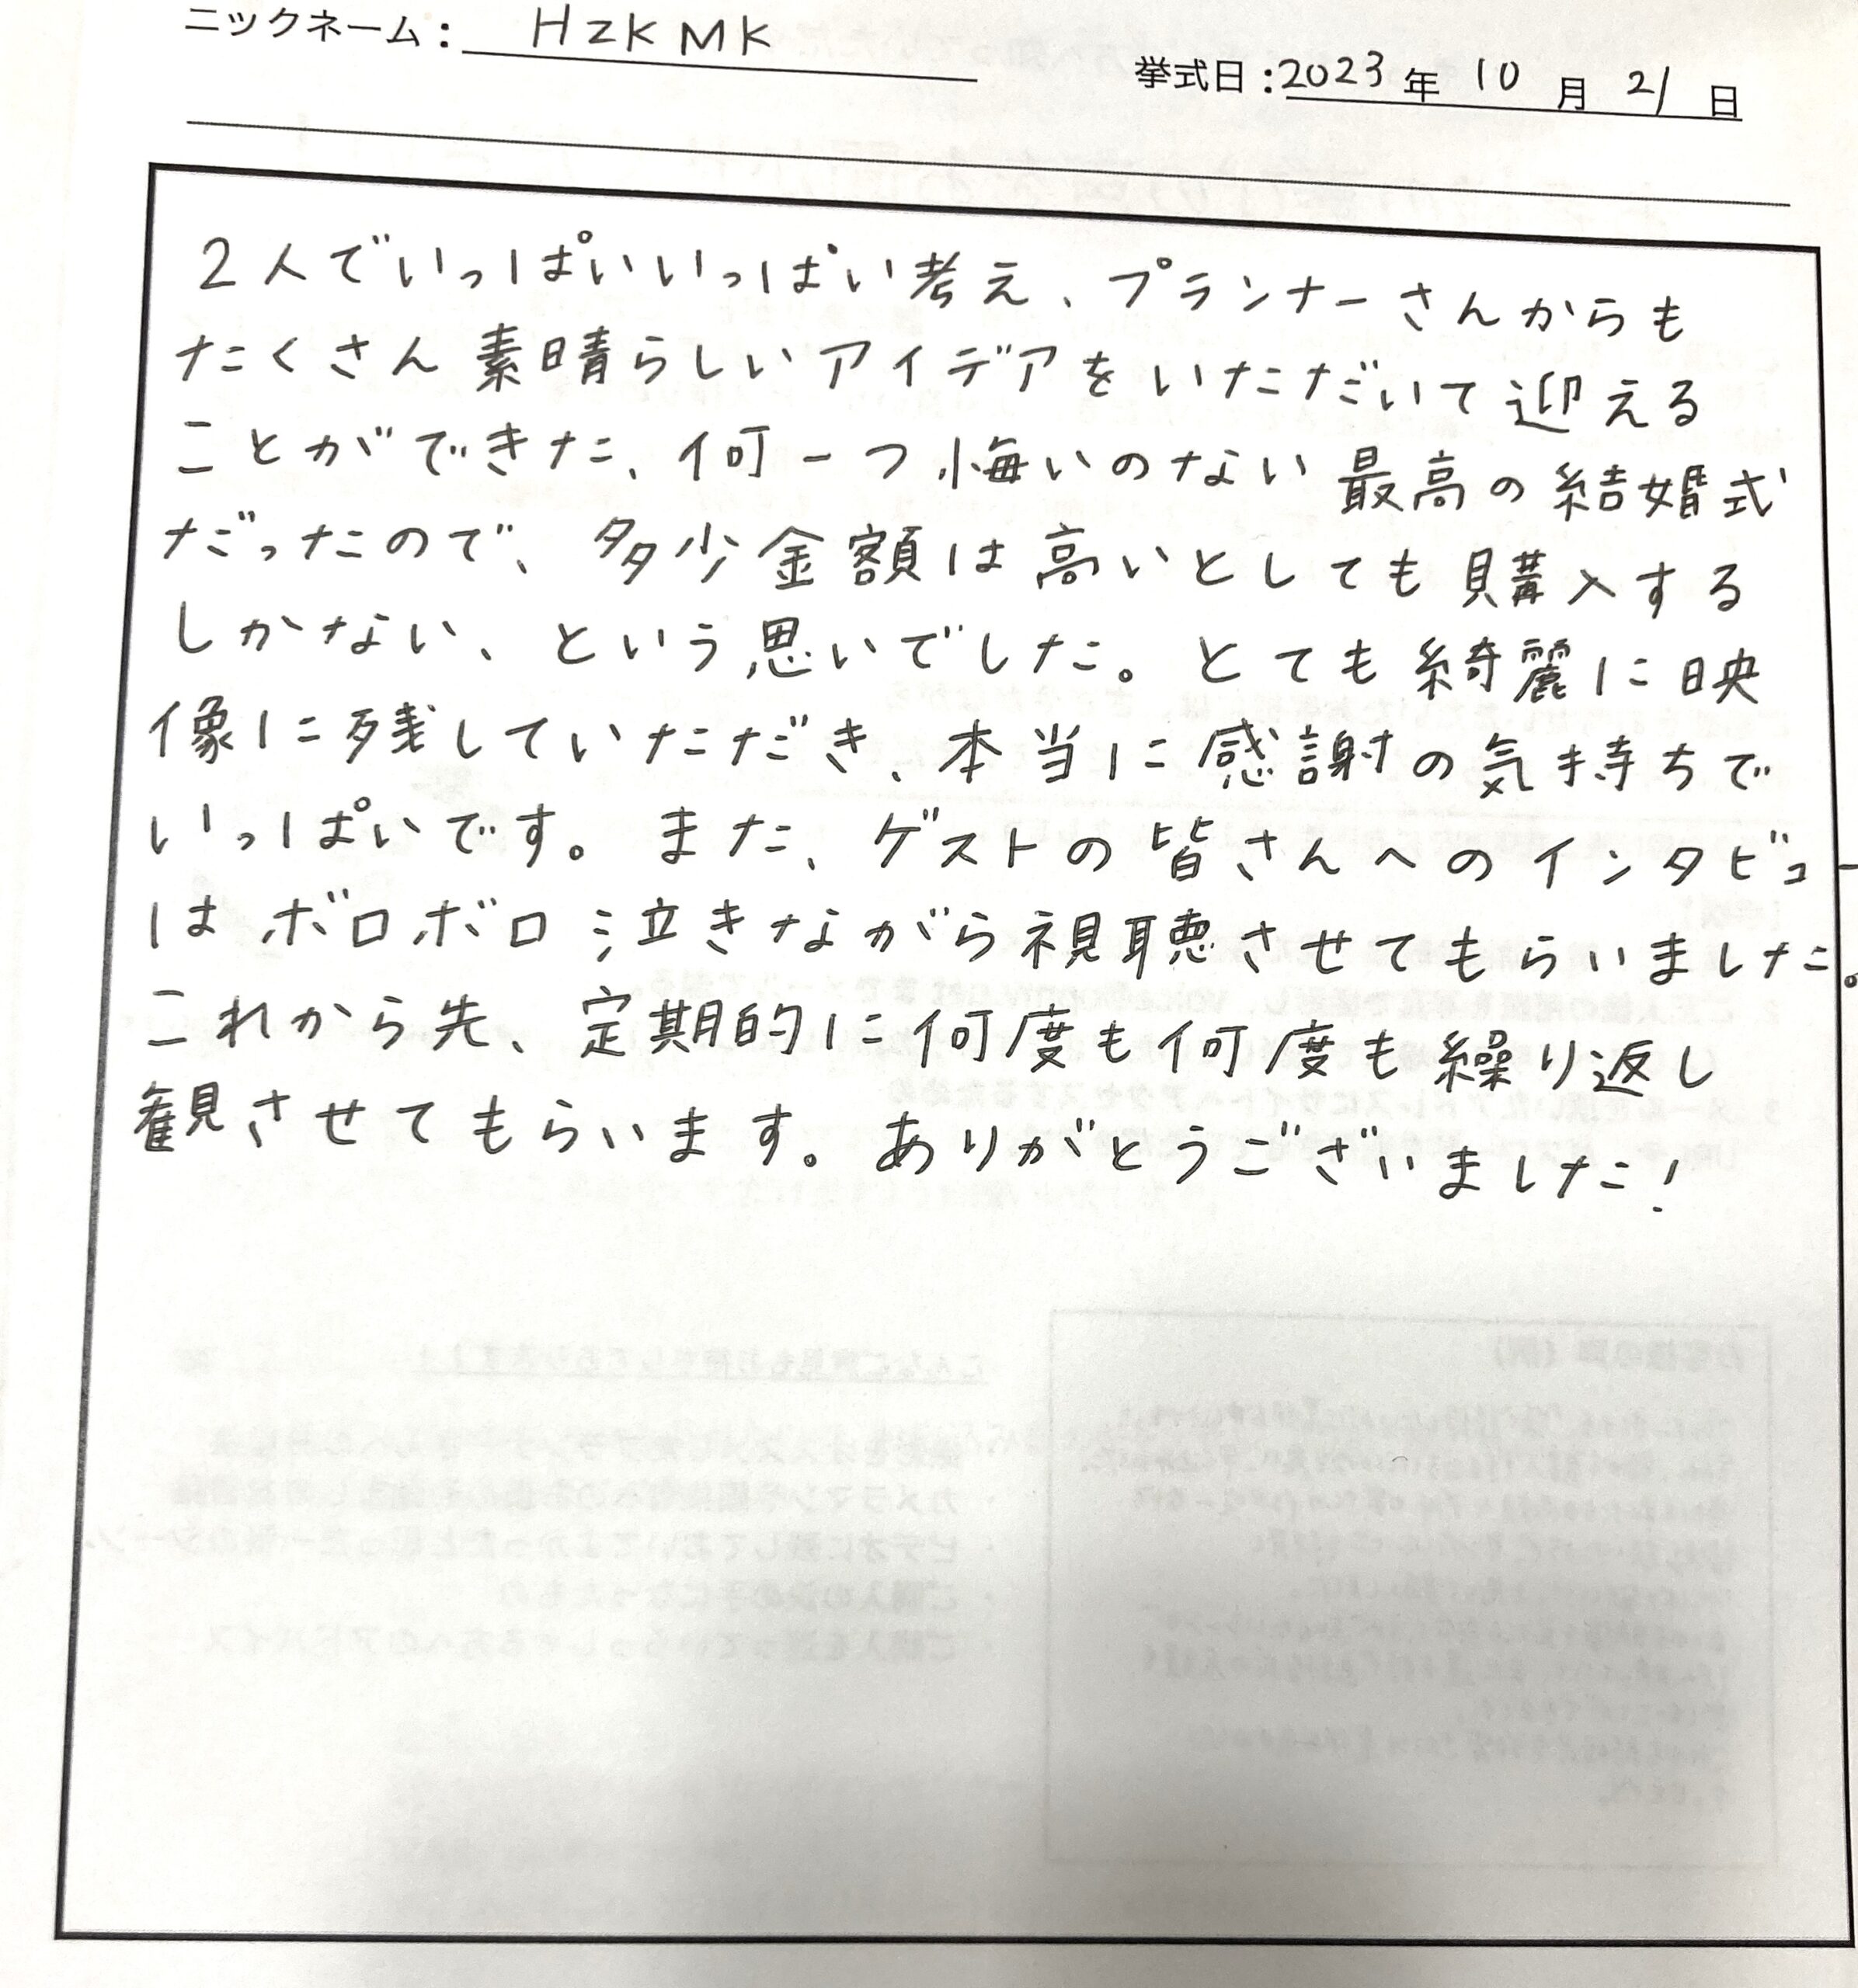 ニックネーム： HzKMK
挙式日：2023年10月21日
2人でいっぱいいっぱい考え、プランナーさんからも
たくさん素晴らしいアイデアをいただいて迎える
ことができた、何一つ悔いのない最高の結婚式
だったので、多少金額は高いとしても購入する
しかない、という思いでした。とても綺麗に映
像に残していただき、本当に感謝の気持ちで
いっぱいです。また、ゲストの皆さんへのインタビュー
はボロボロ泣きながら視聴させてもらいました。
これから先、定期的に何度も何度も繰り返し
観させてもらいます。ありがとうございました!